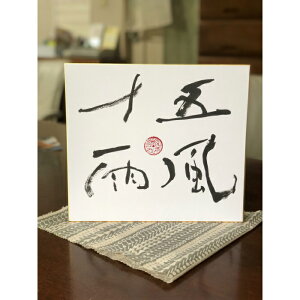 五風
十雨